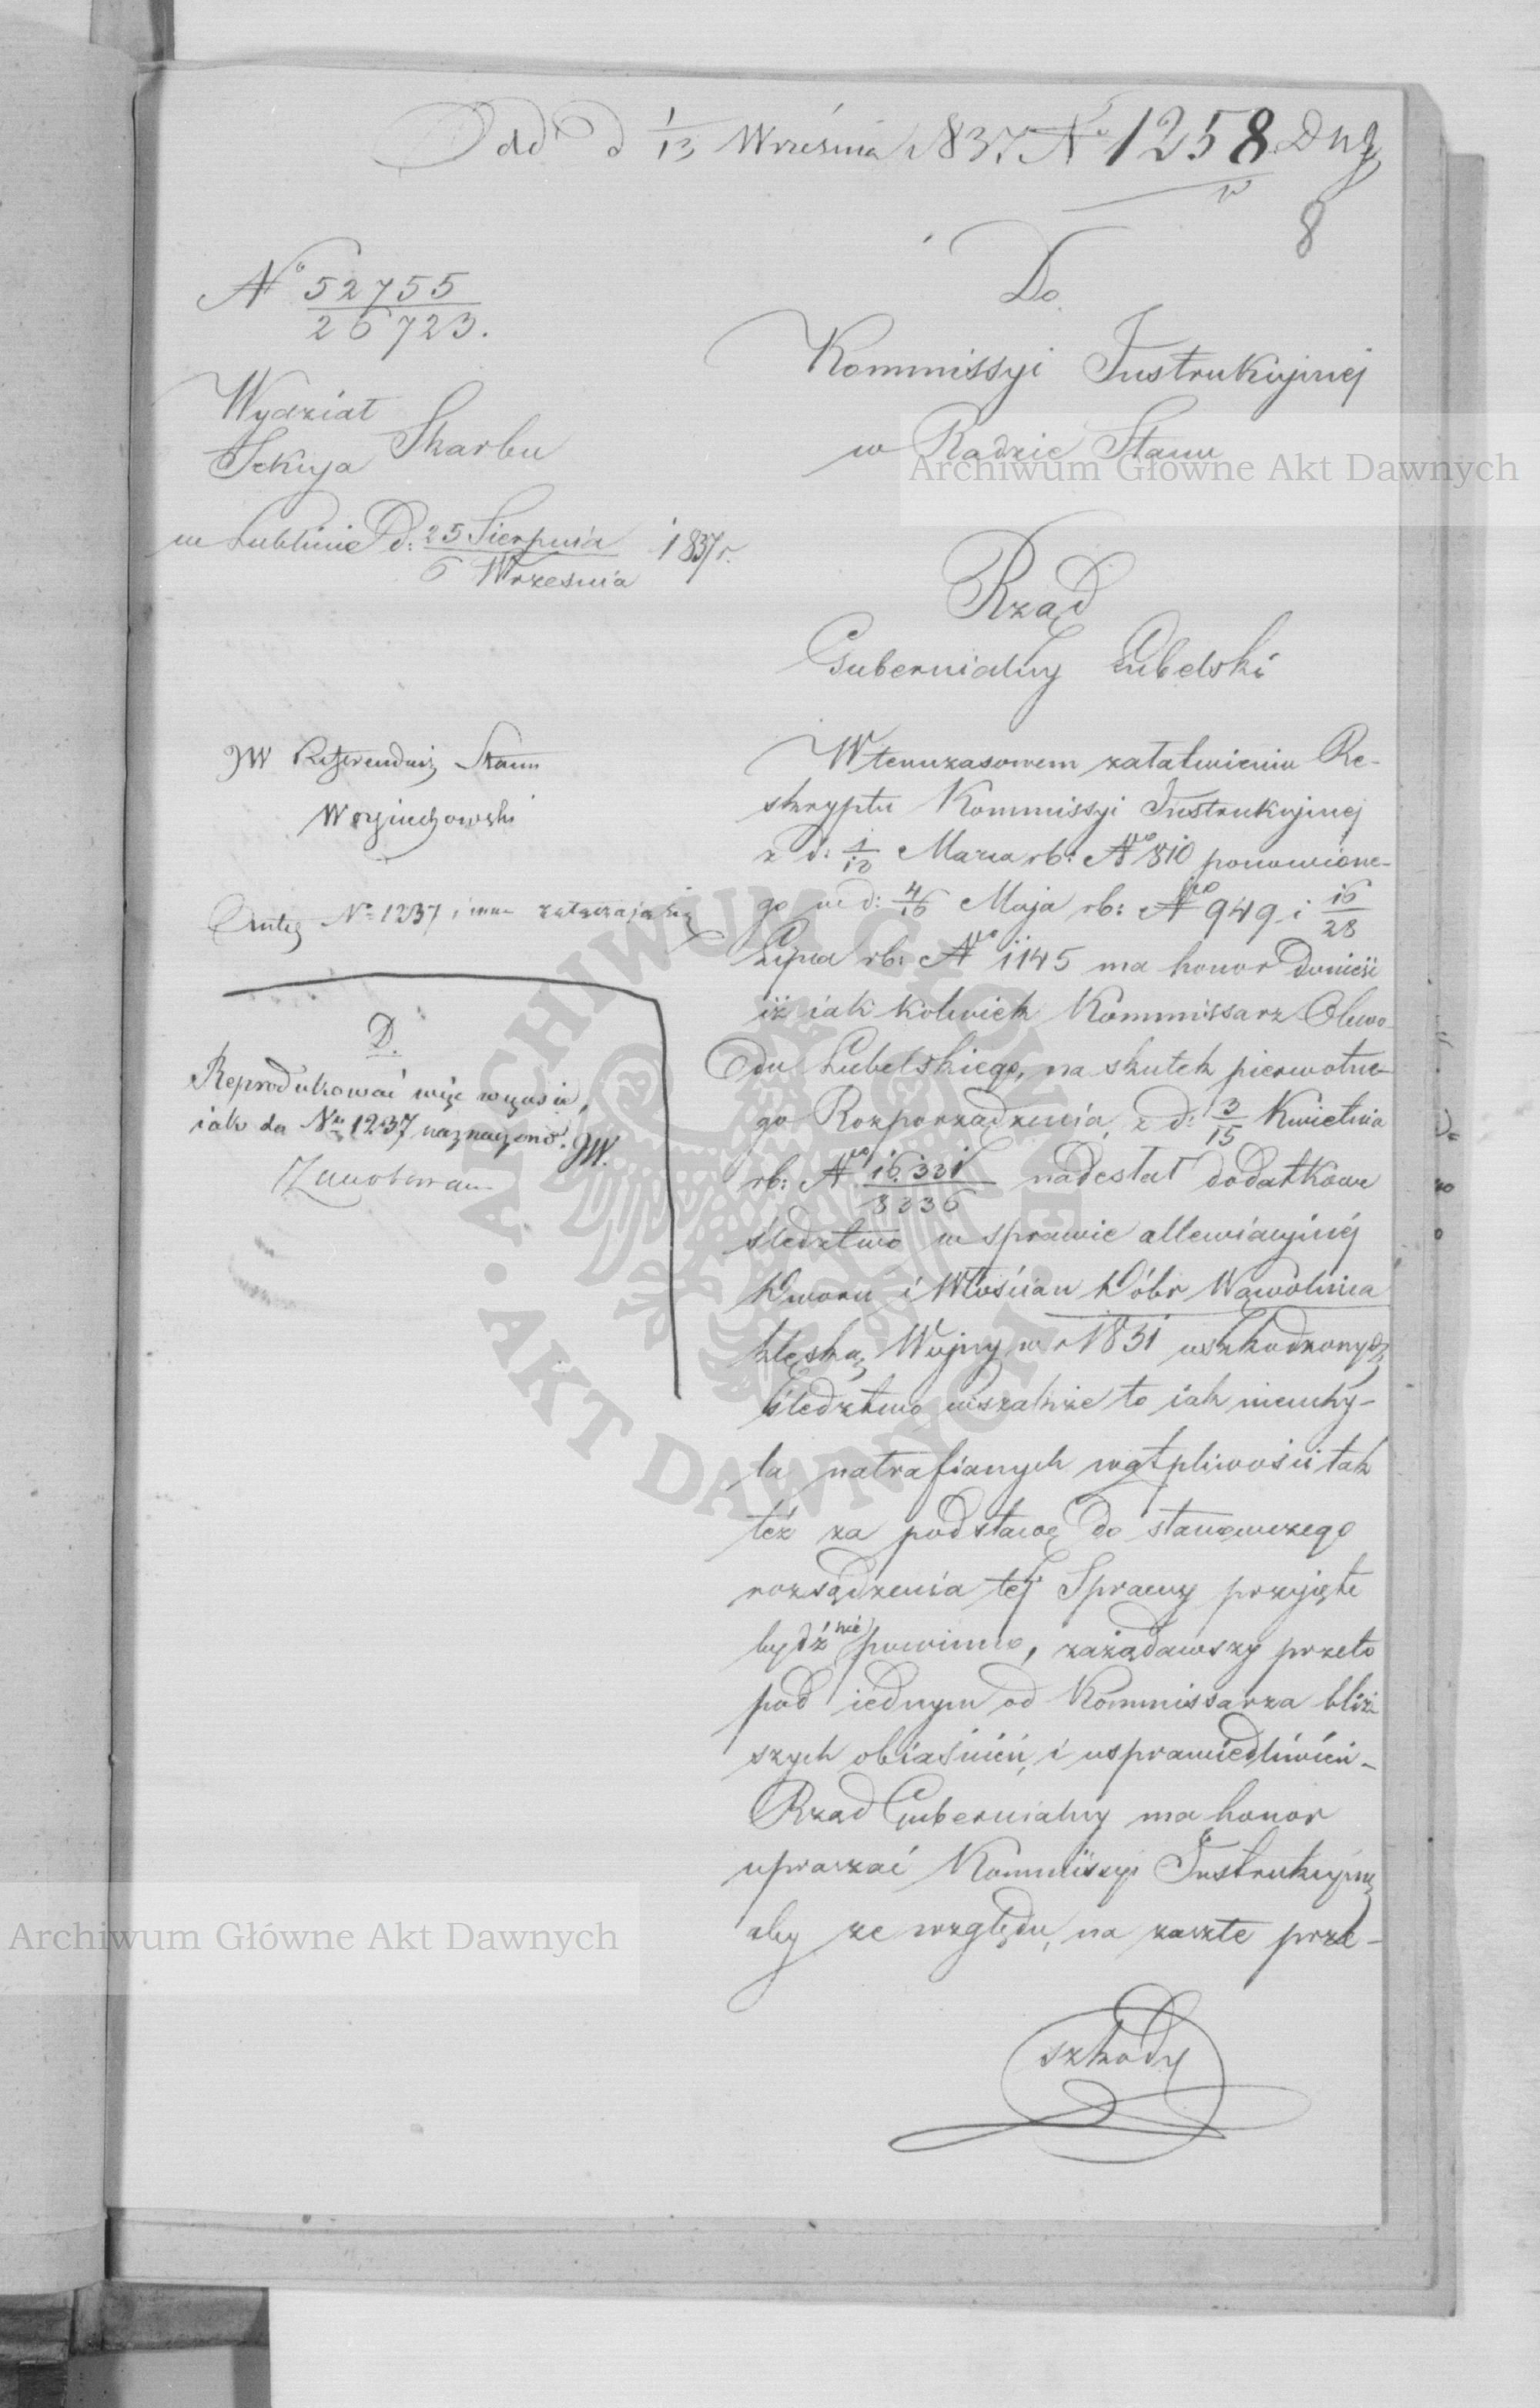 d 1/13 Września 1837. No 1258
8
No 52755/26723.
Wydział
Sekcya Skarbu
w Lublinie D: 25 Sierpnia/6 Września 1837 r.
Do
Kommissyi Instrukcyjnej
w Radzie Stanu
Rząd
Gubernialny Lubelski
JW Referendarz Stanu
Woyciechowski
No 1237 i inne załączają się
D.
Reprodukować więc wczasie,
iak do Nru 1237 naznaczono. JW.
W tymczasowem załatwieniu Re-
skryptu Kommissyi Instrukcyjnej
z d: Marca rb: Nro 810 ponowione-
go pod d: 4/16 Maja rb: Nro 949 i 16/28
Lipca rb: Nro 1145 ma honor donieść
iż iak kolwiek Kommissarz Obwo-
du Lubelskiego, na skutek pierwotne-
go Rozporządzenia z d: 3/15 Kwietnia
rb: Nro 16331/8336 nadesłał dodatkowe
śledztwo w sprawie allewiacyjnej
Dworu i Włościan Dóbr Wąwolnica
klęską Wojny w r 1831 uszkodzonych
śledztwo wszakże to iak nieuchy-
la natrafianych wątpliwości tak
też za podstawę do stanowczego
rozsądzenia tej Sprawy przyięte
bydź nie powinno, zażądawszy przeto
pod iednym od Kommissarza bliż
szych obiaśnień, i usprawiedliwień-
Rząd Gubernialny ma honor
upraszać Kommissyi Instrukcyjną
aby ze względu, na zaszłe prze-
szkody
Archiwum Główne Akt Dawnych
Archiwum Główne Akt Dawnych
ARCHIWUM GŁÓWNE
AKT DAWNYCH